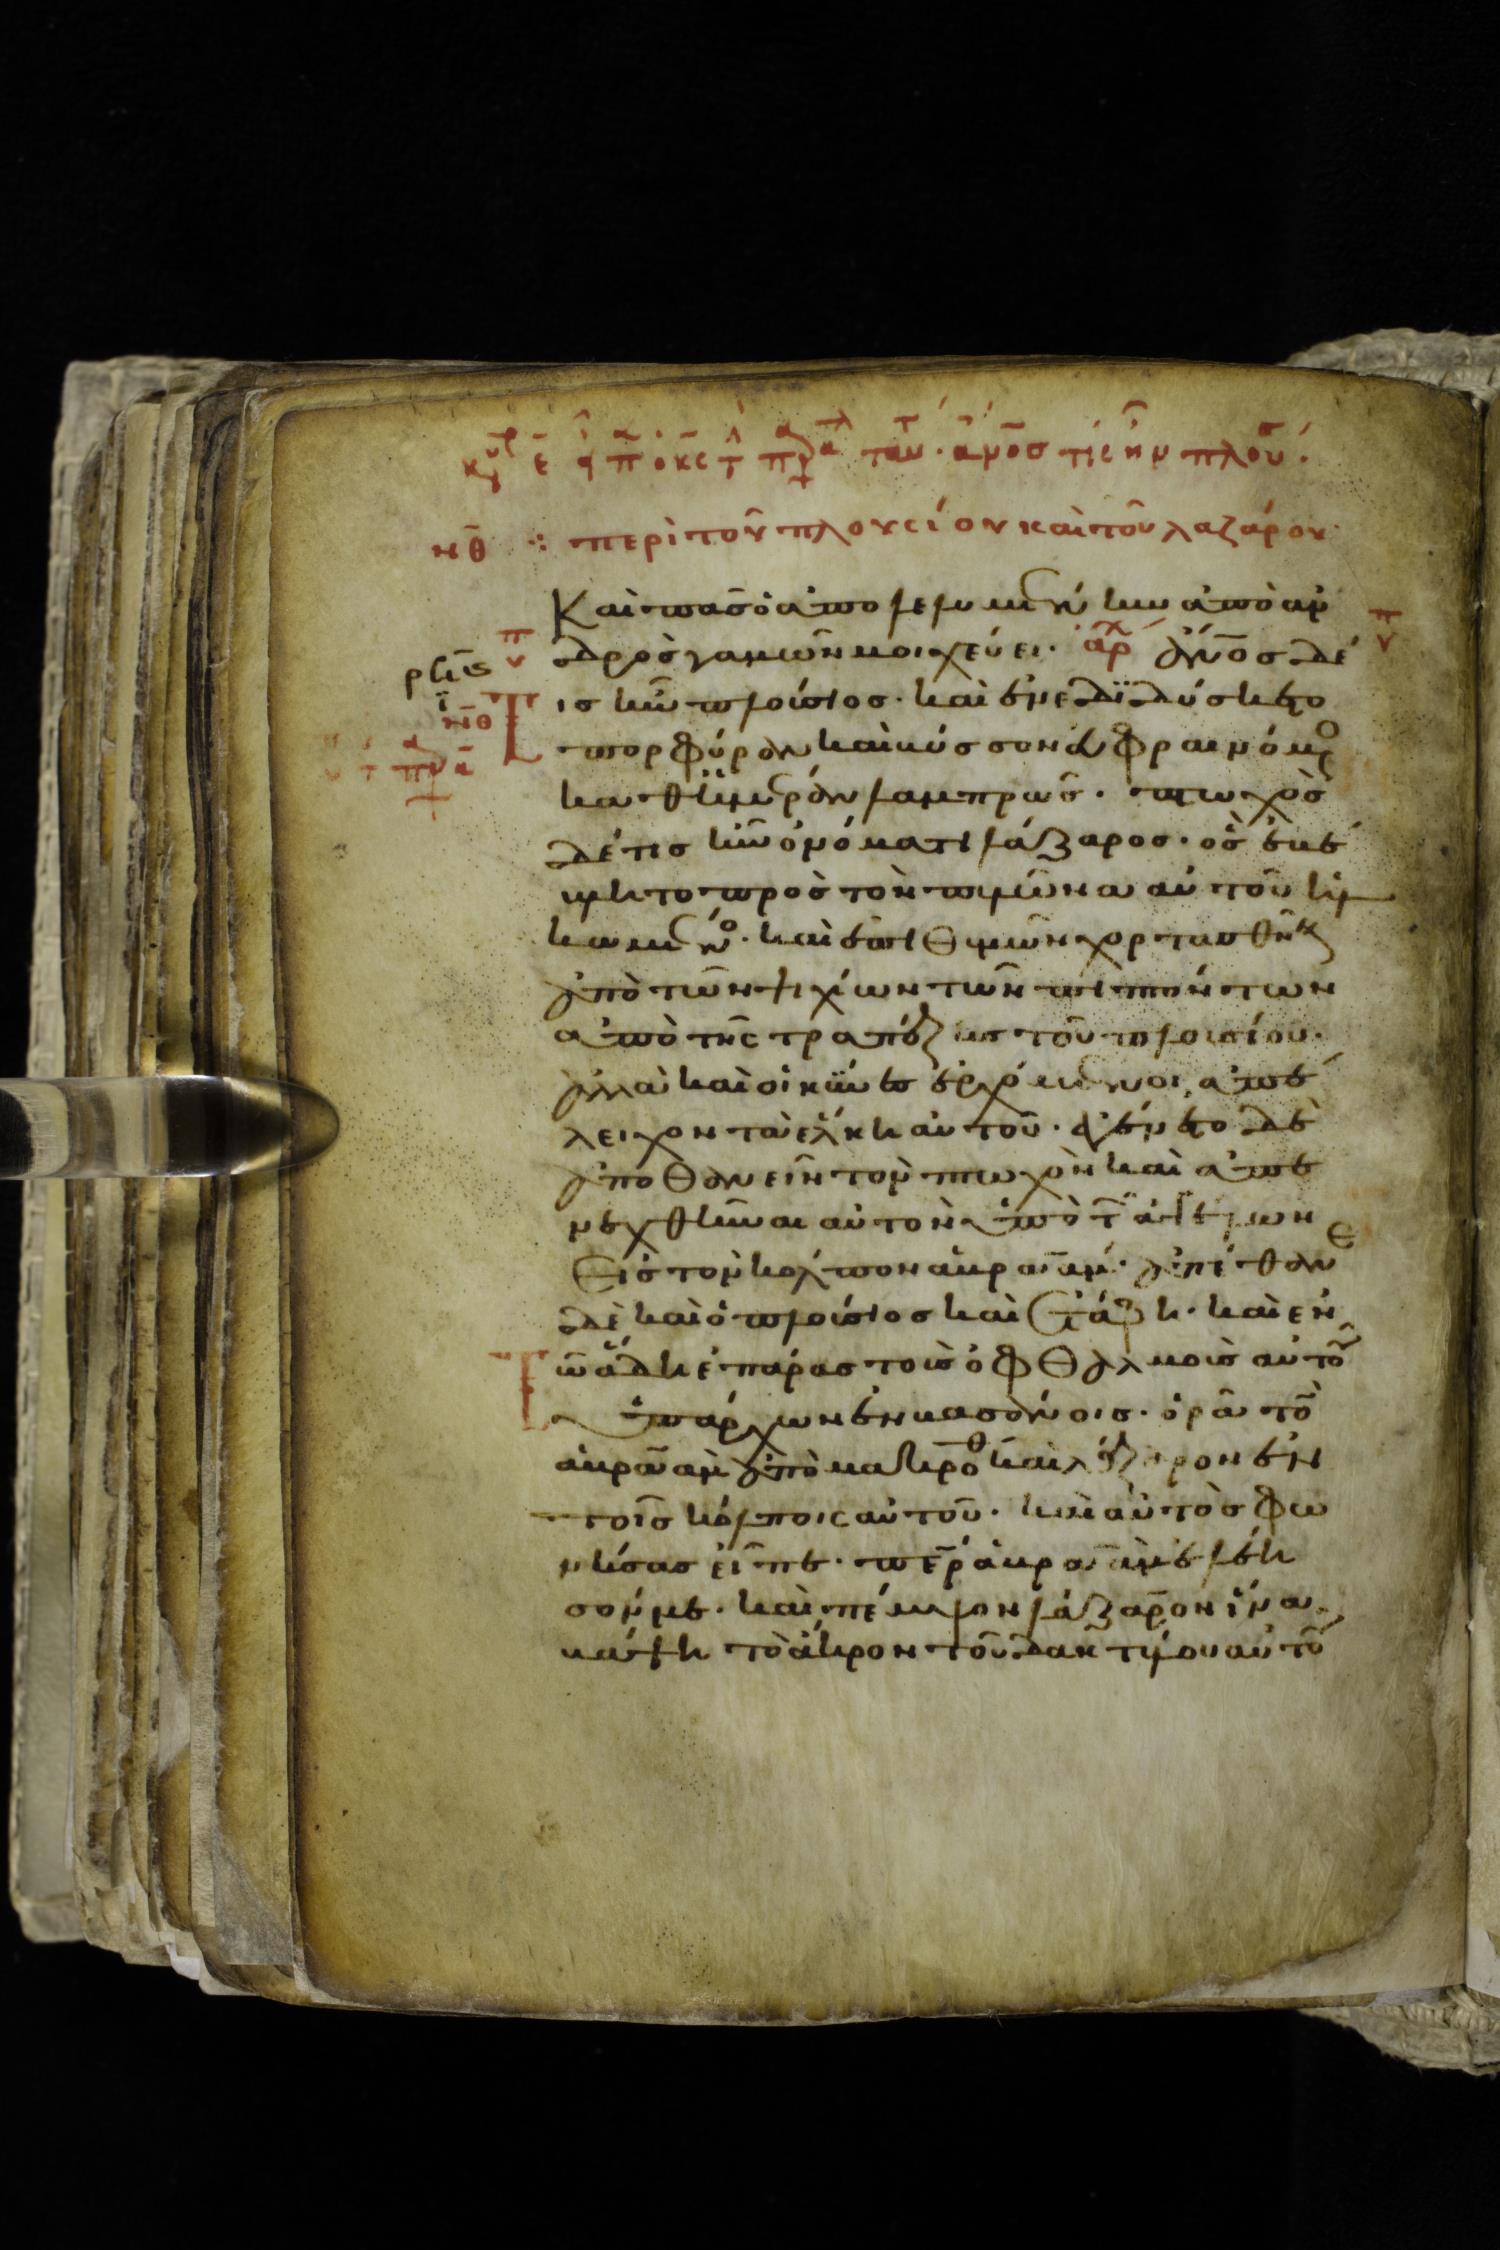 νθ ∴ περὶ τοῦ πλουσίου καὶ τοῦ λαζάρου
Καὶ πᾶσ ὁ ἀπολελυμένην ἀπὸ ἀν
δρὸσ γαμῶν μοιχεύει· ἀρχ ἄνοσ δέ
τισ ἦν πλούσιοσ· καὶ ἐνεδϊδύσκετο
πορφύραν καὶ βύσσον εὐφραινόμενο
καθ ἡμέραν λαμπρῶσ· πτωχὸσ
δέ τισ ἦν ὀνόματι λάζαροσ· ὃσ ἐβέ
βλητο πρὸσ τὸν πυλῶνα αὐτοῦ ἡλ
κωμένο· καὶ ἐπιθυμῶν χορτασθῆναι
ἀπὸ τῶν ψιχίων τῶν πιπτόντων
ἀπὸ τῆσ τραπέζησ τοῦ πλουσίου·
ἀλλὰ καὶ οἱ κύνεσ ἐρχόμενοι ἀπέ
λειχον τὰ ἕλκη αὐτοῦ· ἐγένετο δὲ
ἀποθανεῖν τὸν πτωχὸν καὶ ἀπε
νεχθῆναι αὐτὸν ὑπὸ τ ἀγγέλων
εἰσ τὸν κόλπον ἀβραάμ· ἀπέθανε
δὲ καὶ ὁ πλούσιοσ καὶ ἐτάφη· καὶ ἐν
τῶ ἅδη ἐπάρασ τοὺσ ὀφθαλμοὺσ αὐτοῦ
ὑπάρχων ἐν βασάνοισ· ὁρᾶ τὸ
ἀβραὰμ ἀπὸ μακρόθ καὶ λάζαρον ἐν
τοῖσ κόλποισ αὐτοῦ· καὶ αὐτὸσ φω
νήσασ εἶπε· περ ἀβραὰμ ἐλέη
σόν με· καὶ πέμψον λάζαρον ἵνα
βάψη τὸ ἄκρον τοῦ δακτύλου αὐτοῦ